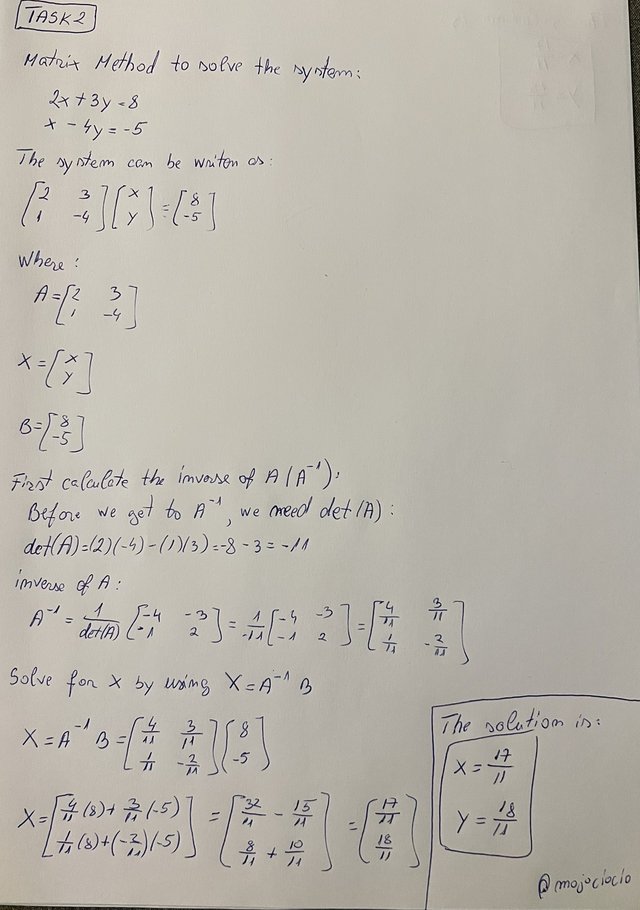 TASK 2
Matrix Method to solve the system:
2x + 3y = 8
x - 4y = -5
The system can be writon as:
[2 3; 1 -4] [x; y] = [8; -5]
Where:
A = [2 3; 1 -4]
X = [x; y]
B = [8; -5]
First calculate the inverse of A (A⁻¹):
Before we get to A⁻¹, we need det(A):
det(A) = (2)(-4) - (1)(3) = -8 - 3 = -11
inverse of A:
A⁻¹ = 1/det(A) [-4 -3; -1 2] = 1/-11 [-4 -3; -1 2] = [4/11 3/11; 1/11 -2/11]
Solve for X by using X = A⁻¹ B
X = A⁻¹ B = [4/11 3/11; 1/11 -2/11] [8; -5]
X = [4/11 (8) + 3/11 (-5); 1/11 (8) + (-2/11)(-5)] = [32/11 - 15/11; 8/11 + 10/11] = [17/11; 18/11]
The solution is:
X = 17/11
Y = 18/11
@mojociocio